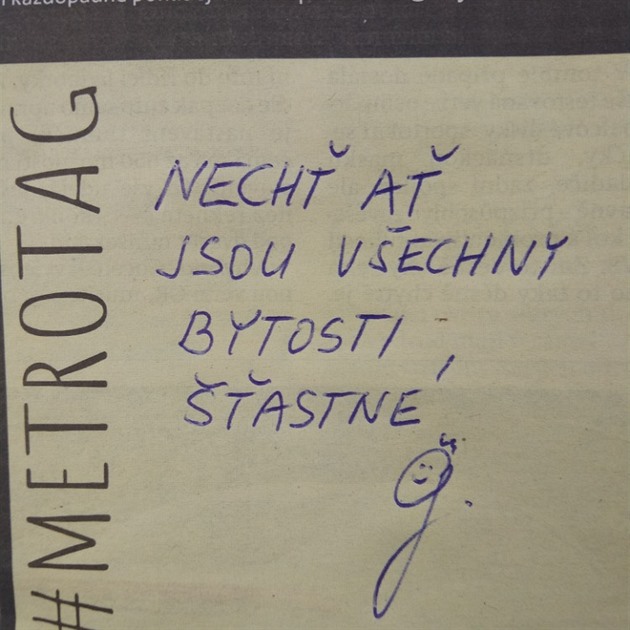 #METROTAG
NECHŤ AŤ
JSOU VŠECHNY
BYTOSTI
ŠŤASTNÉ